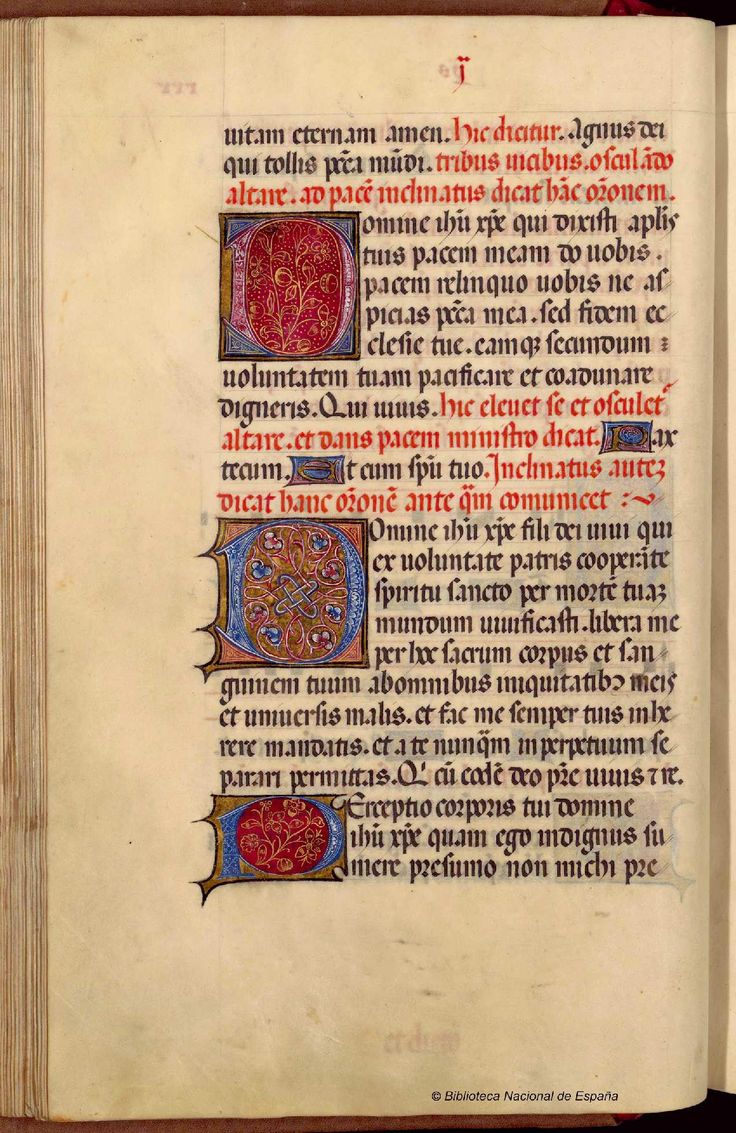 ij
uitam eternam amen. hic dicitur. Agnus dei
qui tollis pctā mūdi. tribus uicibus. osculādo
altare. ad pacē inclinatus dicat hāc orōnem.
Domine ihū xp̄e qui dixisti aplis
tuis pacem meam do uobis.
pacem relinquo uobis ne as
picias pctā mea. sed fidem ec
clesie tue. eamqꝫ secundum :
uoluntatem tuam pacificare et coadunare
digneris. Qui uiuis. hic eleuet se et osculet
altare. et dans pacem ministro dicat. Pax
tecum. Et cum spū tuo. Inclinatus auteꝫ
dicat hanc orōnē ante q̄m comunicet :~
Domine ihū xp̄e fili dei uiui qui
ex uoluntate patris cooperāte
spiritu sancto per mortē tuaꝫ
mundum uiuificasti. libera me
per hoc sacrum corpus et san-
guinem tuum abomnibus iniquitatibꝫ meis
et uniuersis malis. et fac me semper tuis inhe
rere mandatis. et a te nunq̄m inperpetuum se
parari permittas. Q' cū eodē deo pr̄e uiuis ⁊ re.
PErceptio corporis tui domine
ihū xp̄e quam ego indignus su
mere presumo non michi pre
© Biblioteca Nacional de España